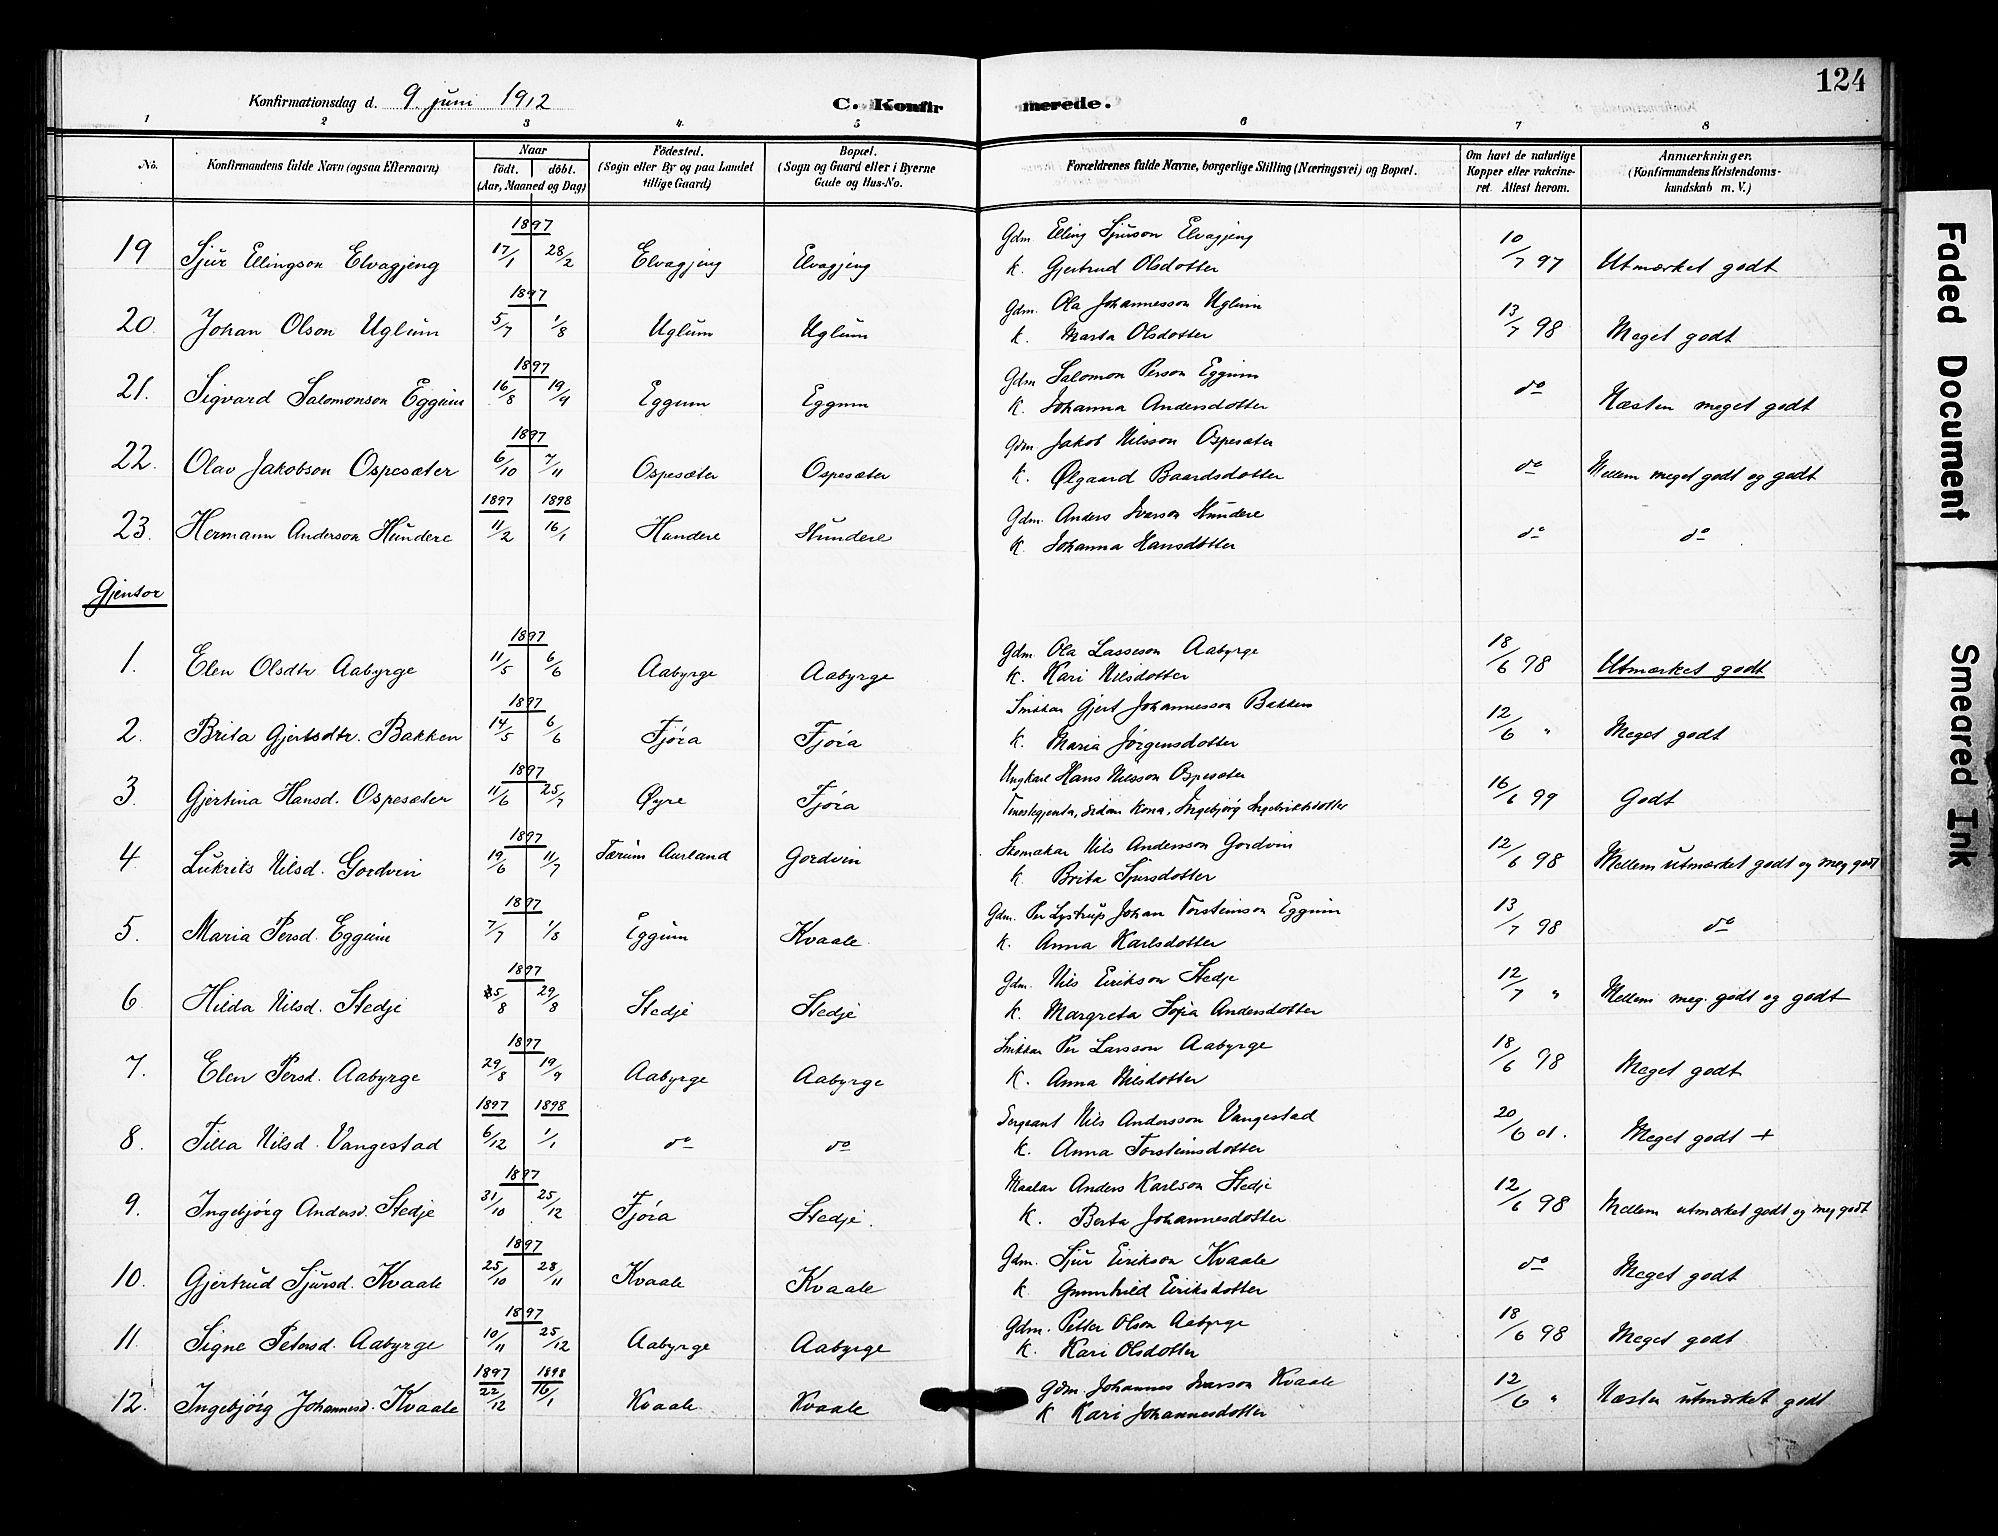 124
Konfirmationsdag d. 9. juni 1912 C. Konfirmerede.
1 2 3 4. 5 6 7 8
No. Konfirmandens fulde Navn (ogsaa Efternavn) Naar födt. döbt. (Aar, Maaned og Dag) Födested. (Sogn eller By og paa Landet tillige Gaard) Bopæl. (Sogn og Gaard eller i Byerne Gade og Hus-No. Forældrenes fulde Navne, borgerlige Stilling (Næringsvei) og Bopæl. Om havt de naturlige Kopper eller vakcineret. Attest herom. Anmærkninger. (Konfirmandens Kristendomskundskab m. V.)
1897
19 Sjur Ellingson Elvagjeng 17/1 28/2 Elvagjeng Elvagjeng Gdm Elling Sjurson Elvagjeng 10/7 97 Utmærket godt
K. Gjertrud Olsdotter
1897
20. Johan Olson Uglum 5/7 1/8 Uglum Uglum Gdm. Ola Johannesson Uglum 13/7 98 Meget godt
K. Marta Olsdotter
1897
21. Sigvard Salomonson Eggum 16/8 19/9 Eggum Eggum Gdm Salomon Person Eggum do Næsten meget godt
K. Johanna Andersdotter
1897
22. Olav Jakobson Ospesæter 6/10 7/11 Ospesæter Ospesæter Gdm. Jakob Nilsson Ospesæter do Mellem meget godt og godt
K. Ølgaard Baardsdotter
1897 1898
23. Hermann Anderson Hundere 11/2 16/1 Hundere Hundere Gdm. Anders Ivarson Hundere do do
K. Johanna Hansdotter
Gjentor
1897
1. Elen Olsdtr Aabyrge 11/5 6/6 Aabyrge Aabyrge Gdm Ola Lasseson Aabyrge 18/6 98 Utmærket godt
K. Kari Nilsdotter
1897
2. Brita Gjertsdtr. Bakken 14/5 6/6 Fjøra Fjøra Snikkar Gjert Johannesson Bakken 12/6 " Meget godt
K. Maria Jørgensdotter
1897
3. Gjertina Hansd. Ospesæter 11/6 25/7 Øyre Fjøra Ungkarl Hans Nilsson Ospesæter 16/6 99 Godt
Tenestegjenta, sidan kona, Ingebjörg Ingebriktsdotter
1897
4 Lukrets Nilsd. Gordvin 19/6 11/7 Færum Aurland Gordvin Skomakar Nils Andersson Gordvin 12/6 98 Mellem utmærket godt og meg godt
K. Brita Sjursdotter
1897
5. Maria Persd. Eggum 7/7 1/8 Eggum Kvaale. Gdm. Per Lystrup Johan Torsteinson Eggum 13/7 98 do
K. Anna Karlsdotter
1897
6 Hilda Nilsd. Stedje 5/8 29/8 Stedje Stedje Gdm. Nils Eirikson Stedje 12/7 " Mellem meg. godt og godt
K. Margreta Sofia Andersdotter
1897
7. Elen Persd. Aabyrge 29/8 19/9 Aabyrge Aabyrge Snikkar Per Larsson Aabyrge 18/6 98 Meget godt
K. Anna Nilsdotter
1897 1898
8. Tilla Nilsd. Vangestad 6/12 1/1 do do Sergeant Nils Andersson Vangestad 20/6 01. Meget godt +
K. Anna Torsteinsdotter
1897
9. Ingebjörg Andersd. Stedje 31/10 25/12 Fjøra Stedje. Maalar Anders Karlson Stedje 12/6 98 Mellem utmærket godt og meg godt
K. Berta Johannesdotter
1897
10. Gjertrud Sjursd. Kvaale 25/10 28/11 Kvaale Kvaale Gdm. Sjur Eirikson Kvaale do Meget godt
K Gunnhild Eiriksdotter
1897
11. Signe Petersd. Aabyrge 10/11 25/12 Aabyrge Aabyrge Gdm. Petter Olson Aabyrge 18/6 98 Meget godt
K. Kari Olsdotter
1897 1898
12. Ingebjörg Johannesd. Kvaale 22/12 16/1 Kvaale Kvaale Gdm. Johannes Ivarson Kvaale 12/6 " Næsten utmærket godt
K Kari Johannesdotter
Faded Document
Smeared Ink